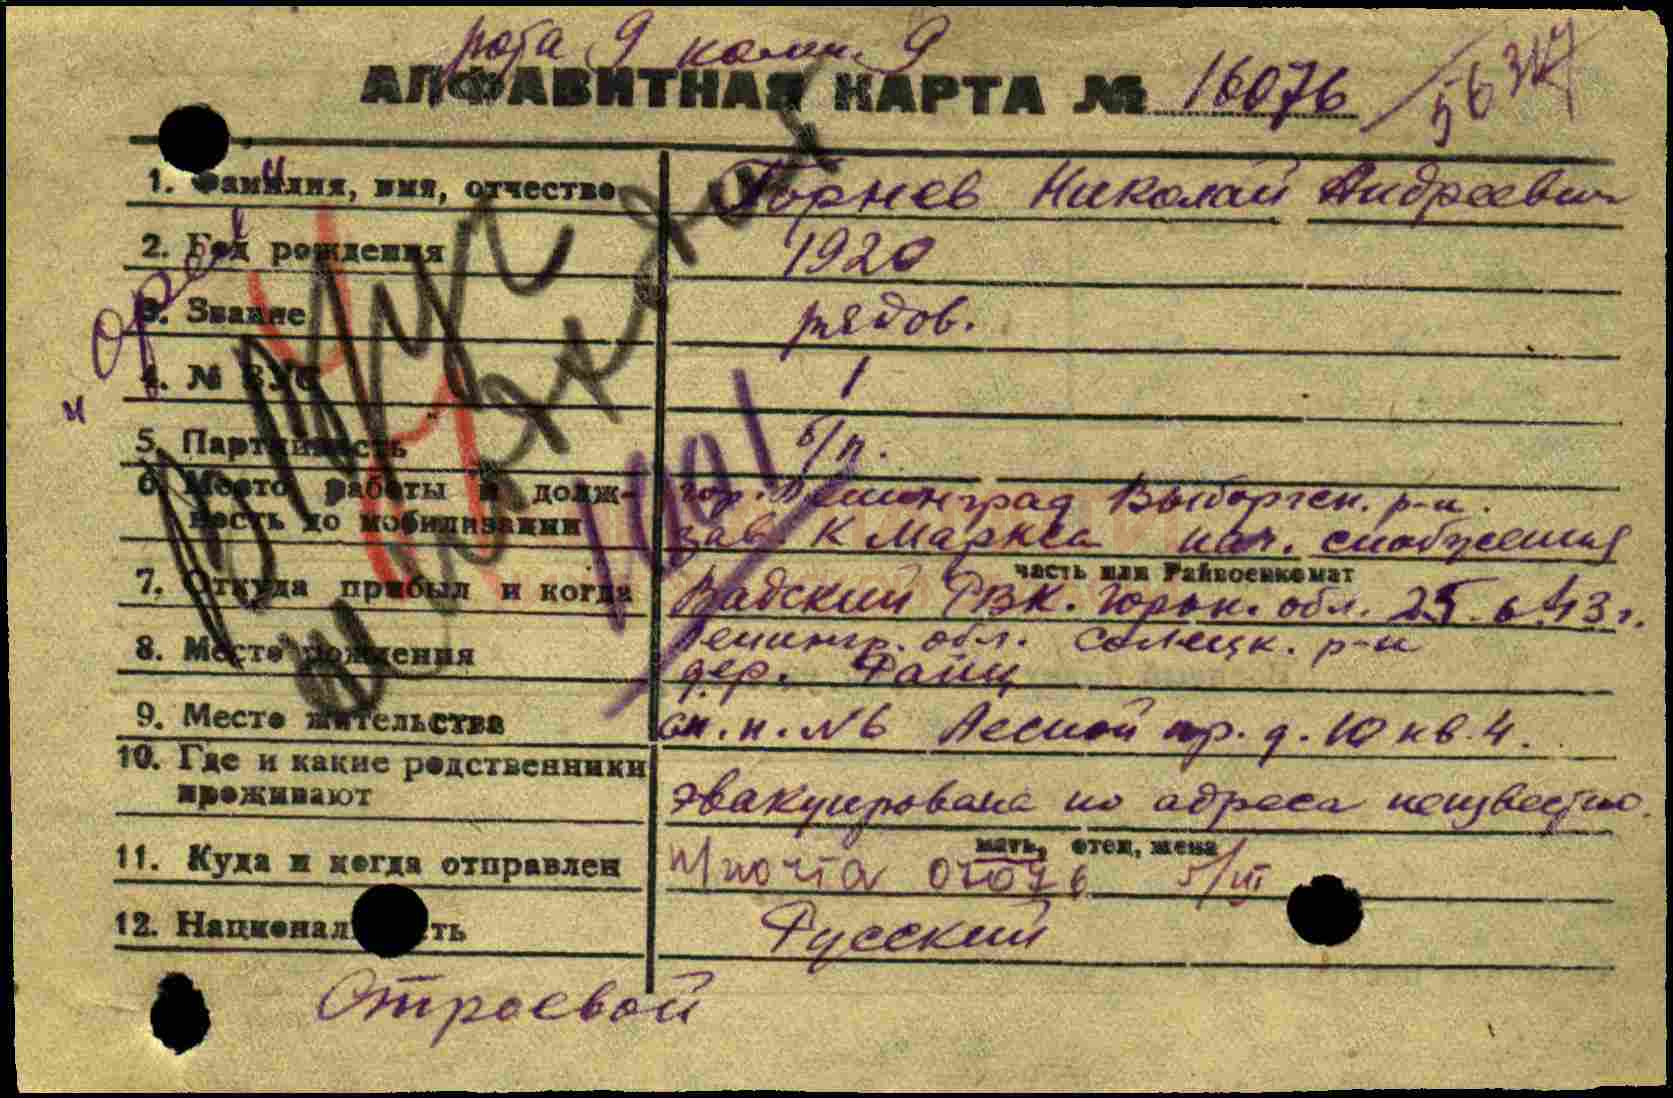 рота 9 комн. 9
АЛФАВИТНАЯ КАРТА № 16076 / 56
1. Фамилия, имя, отчество Горнев Николай Андреевич
2. Год рождения 1920
3. Звание рядов.
4. № ВУС 1
5. Партийность б/п.
6. Место работы и долж- гор. Ленинград Выборгск. р-н.
ность до мобилизации зав. К Маркса нач. снабжения
часть или Райвоенкомат
7. Откуда прибыл и когда Вадский РВК. Горьк. обл. 25.6.43 г.
Ленингр. обл. Солецк. р-н
8. Место рождения дер.
9. Место жительства Лесной пр. д. 10 кв. 4.
10. Где и какие родственники
проживают эвакуирована но адреса неизвестно.
мать, отец, жена
11. Куда и когда отправлен п/почта 5/VII
12. Национальность Русский
Строевой